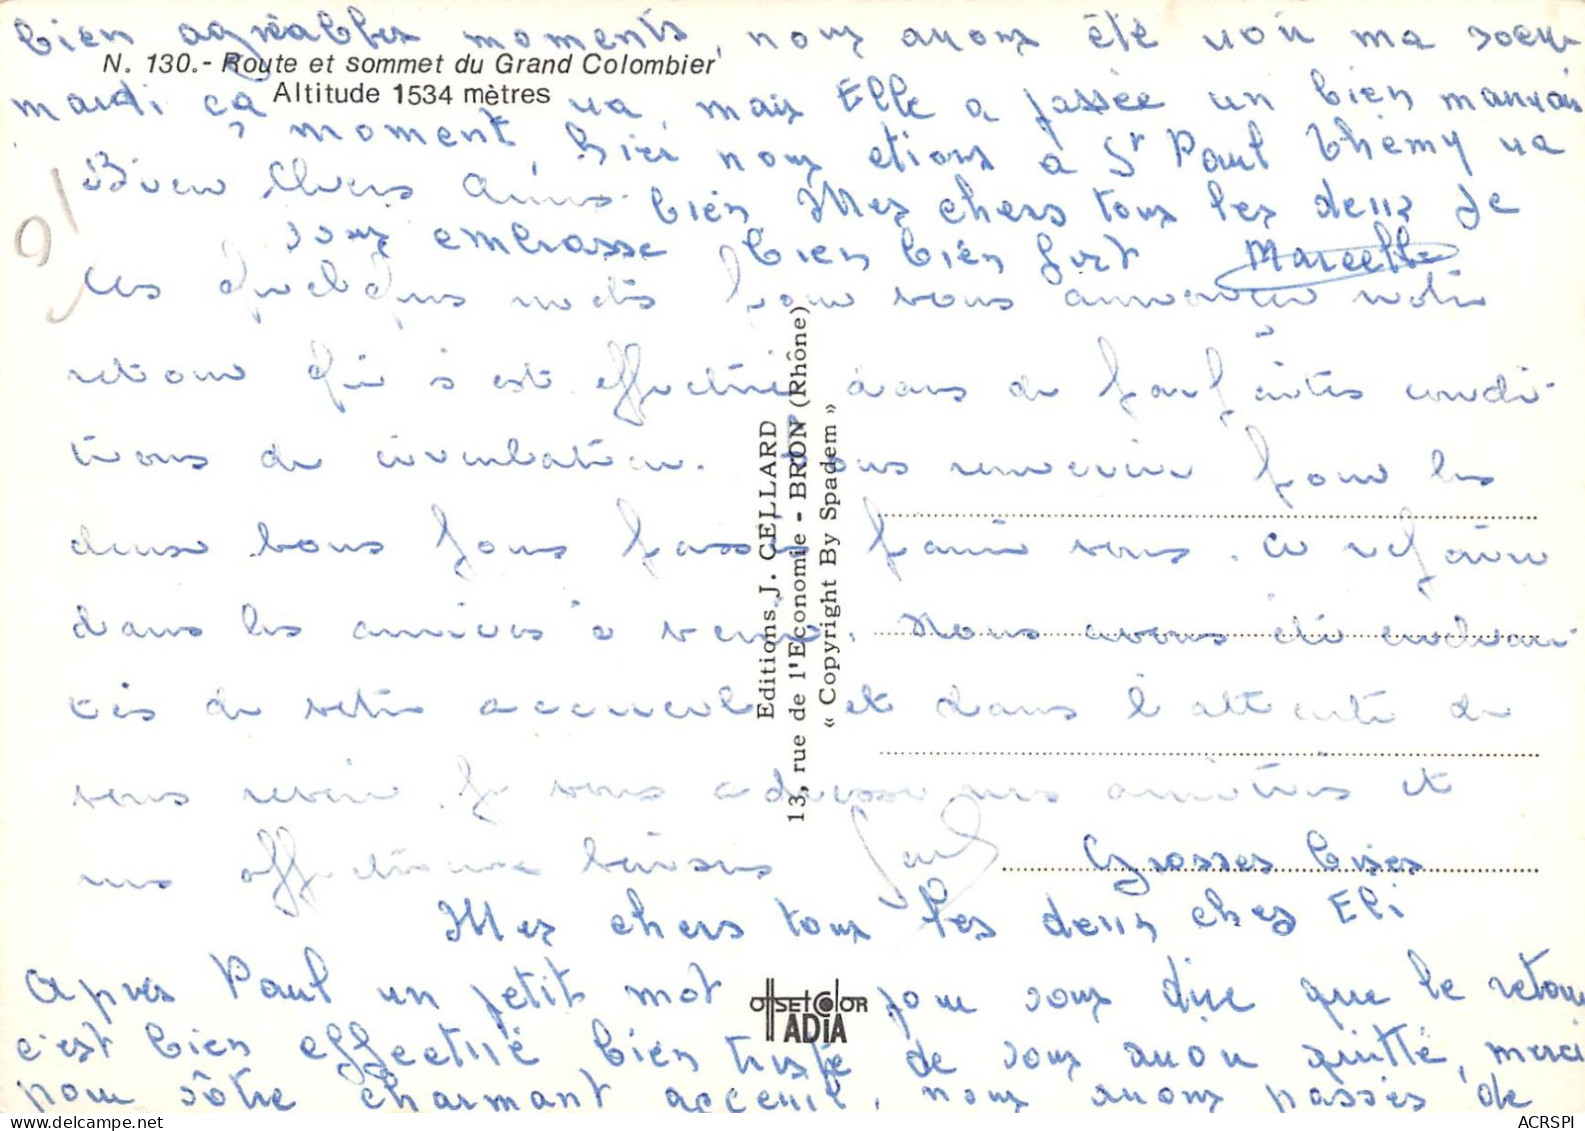 bien agréables moments, nous avons été voir ma soeur
N. 130.- Route et sommet du Grand Colombier
Altitude 1534 mètres
mardi ça va, mais Elle a passée un bien mauvais
moment, hier nous etions a St Paul Thiemy va
Bien Chers Amis.
bien Mes chers tous les deux Je
vous embrasse bien bien fort Marcelle
Ces quelques mots pour vous annoncer notre
retour qui s'est effectué dans de parfaites condi-
tions de circulation. Vous remercier pour les
deux bons jours passés parmi vous. A refaire
dans les années à venir. Nous avons été enchan-
tés de votre accueil et dans l'attente de
vous revoir. Je vous adresse mes amitiés et
mes affectueux baisers Paul
Grosses bises
Mes chers tous les deux chez Eli
Après Paul un petit mot pour vous dire que le retour
c'est bien effectué bien triste de vous avoir quitté, merci
pour vôtre charmant acceuil, nous avons passés de
Editions J. CELLARD
13, rue de l'Economie - BRON (Rhône)
« Copyright By Spadem »
OffSEt COlOR
IADIA
ACRSPI